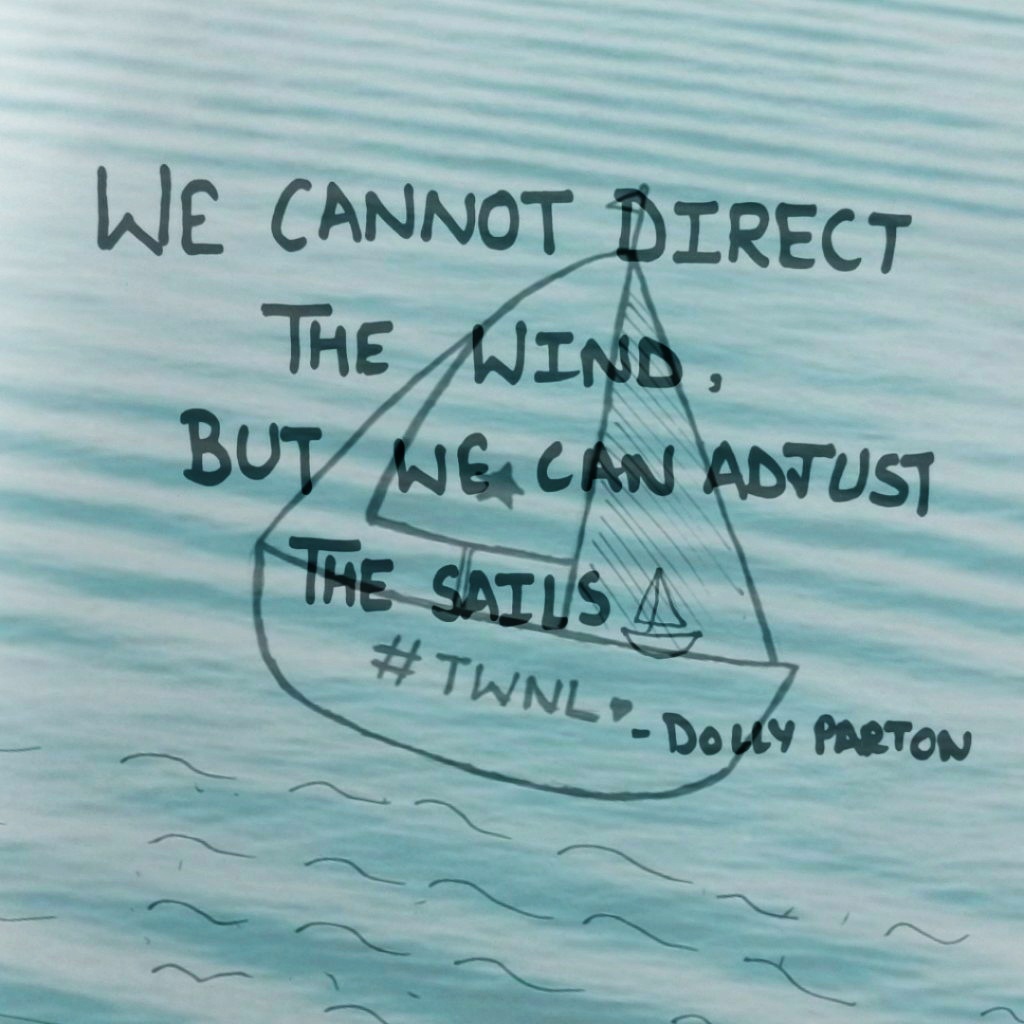 WE CANNOT DIRECT
THE WIND,
BUT WE CAN ADJUST
THE SAILS
#TWNL
- DOLLY PARTON